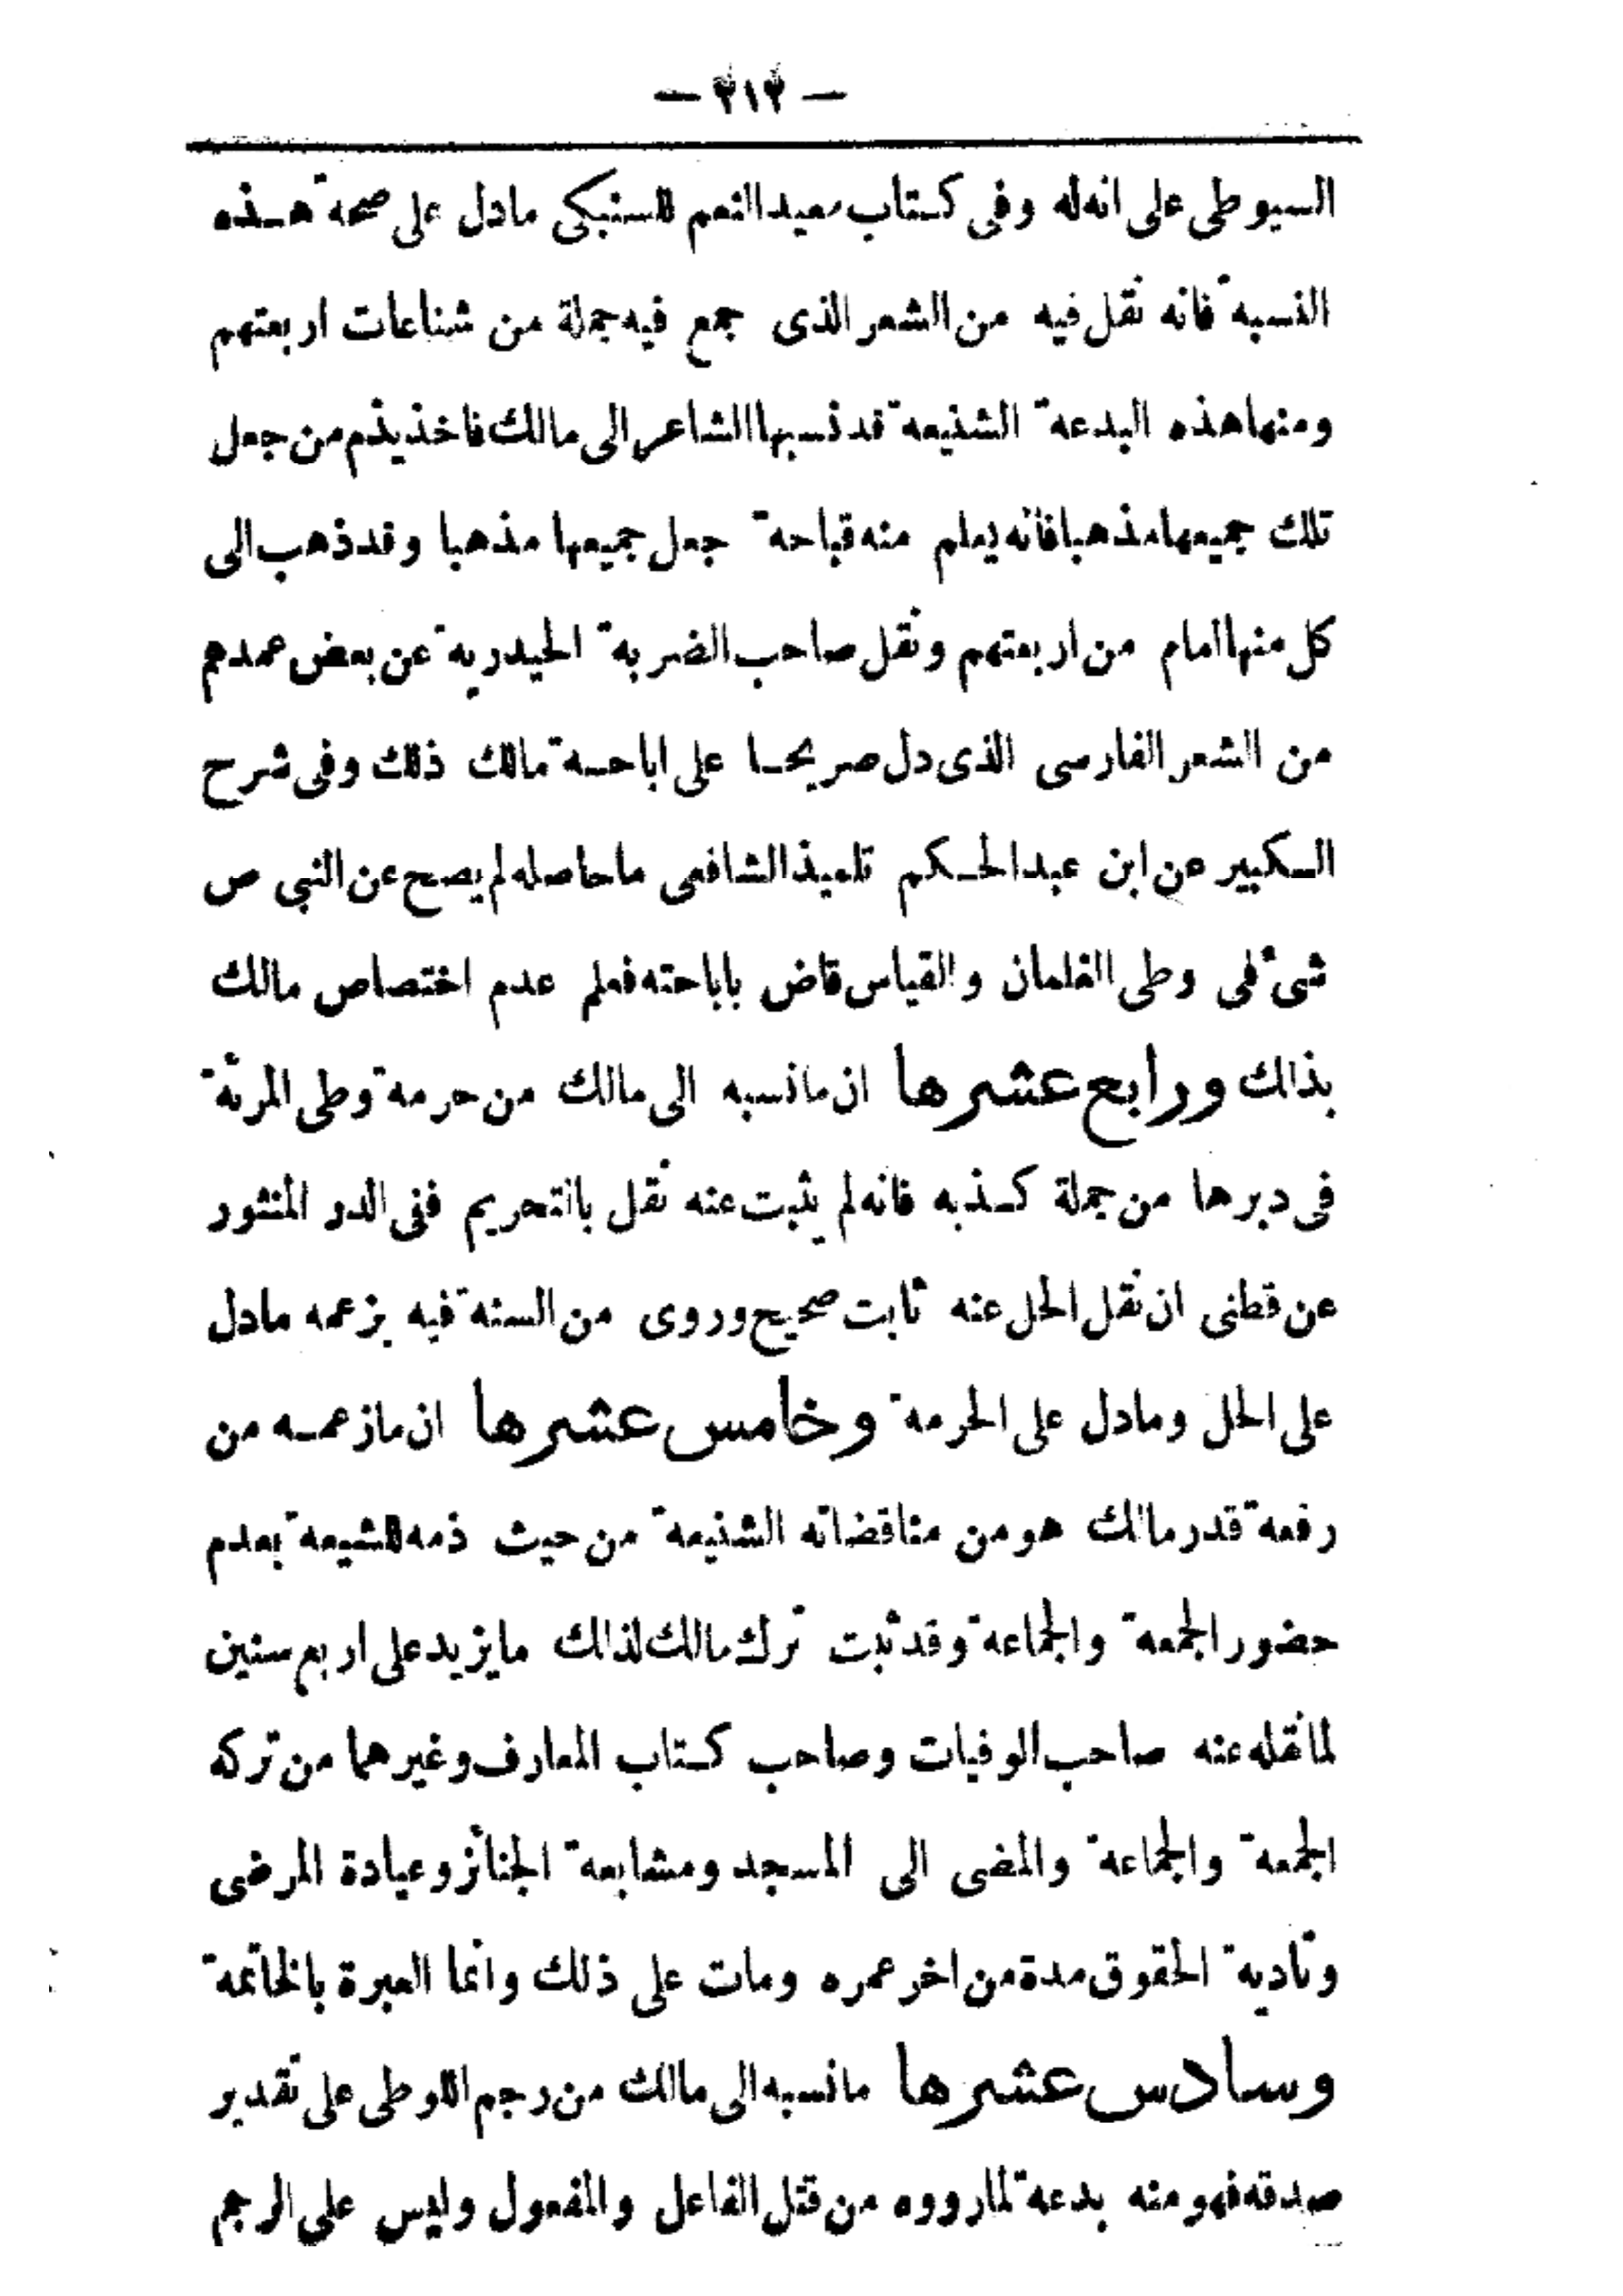 — ٣١٣ —
السيوطى على انه له وفى كتاب معيد النعم للسبكى مادل على صحة هذه
النسبة فانه نقل فيه من الشعر الذى جمع فيه جملة من شناعات اربعتهم
ومنها هذه البدعة الشنيعة قد نسبها الشاعر الى مالك فاخذ يذم من جعل
تلك جميعها مذهبا فانه يعلم منه قباحة جعل جميعها مذهبا وقد ذهب الى
كل منها امام من اربعتهم ونقل صاحب الضربة الحيدرية عن بعض عمدهم
من الشعر الفارسى الذى دل صريحا على اباحة مالك ذلك وفى شرح
الكبير عن ابن عبد الحكم تلميذ الشافعى ما حاصله لم يصح عن النبى ص
شئ فى وطى الغلمان والقياس قاض باباحته فعلم عدم اختصاص مالك
بذالك ورابع عشرها ان مانسبه الى مالك من حرمة وطى المرئة
فى دبرها من جملة كذبه فانه لم يثبت عنه نقل بالتحريم ففى الدر المنثور
عن قطنى ان نقل الحل عنه ثابت صحيح وروى من السنة فيه بزعمه مادل
على الحل ومادل على الحرمة وخامس عشرها ان مازعمه من
رفعة قدر مالك هو من مناقضاته الشنيعة من حيث ذمه للشيعة بعدم
حضور الجمعة والجماعة وقد ثبت ترك مالك لذالك مايزيد على اربع سنين
لما نقله عنه صاحب الوفيات وصاحب كتاب المعارف وغيرهما من تركه
الجمعة والجماعة والمضى الى المسجد ومشابعة الجنائز وعيادة المرضى
وتادية الحقوق مدة من اخر عمره ومات على ذلك وانما العبرة بالخاتمة
وسادس عشرها مانسبه الى مالك من رجم اللوطى على تقدير
صدقه فهو منه بدعة لما رووه من قتل الفاعل والمفعول وليس على الرجم